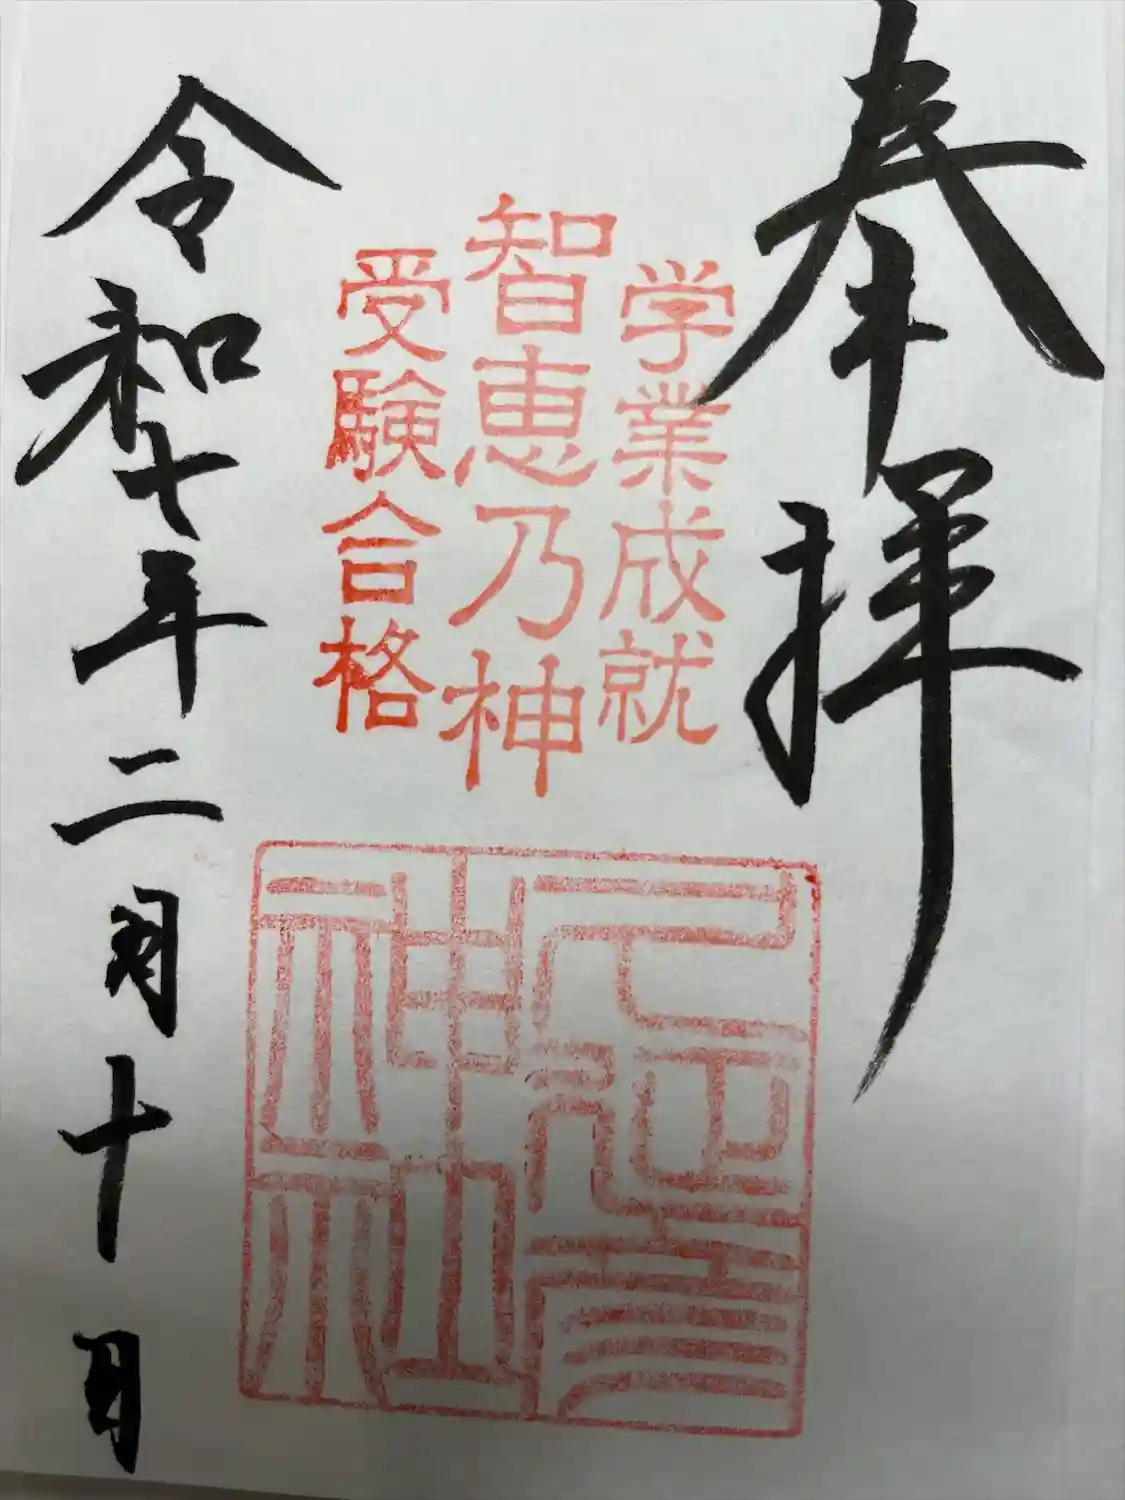 奉拝
学業成就
智恵乃神
受験合格
久延彦
神社
令和七年二月十日